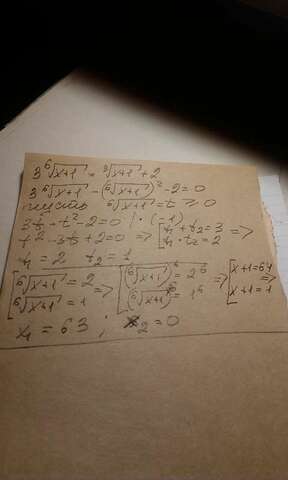 3 ⁶√(x+1) = ³√(x+1) + 2
3 ⁶√(x+1) - (⁶√(x+1))² - 2 = 0
пусть ⁶√(x+1) = t ≥ 0
3t - t² - 2 = 0 | · (-1)
t² - 3t + 2 = 0 => [ t₁ + t₂ = 3 =>
t₁ · t₂ = 2
t₁ = 2 t₂ = 1
[ ⁶√(x+1) = 2 => [ (⁶√(x+1))⁶ = 2⁶ => [ x+1 = 64 =>
⁶√(x+1) = 1 (⁶√(x+1))⁶ = 1⁶ x+1 = 1
x₁ = 63 ; x₂ = 0